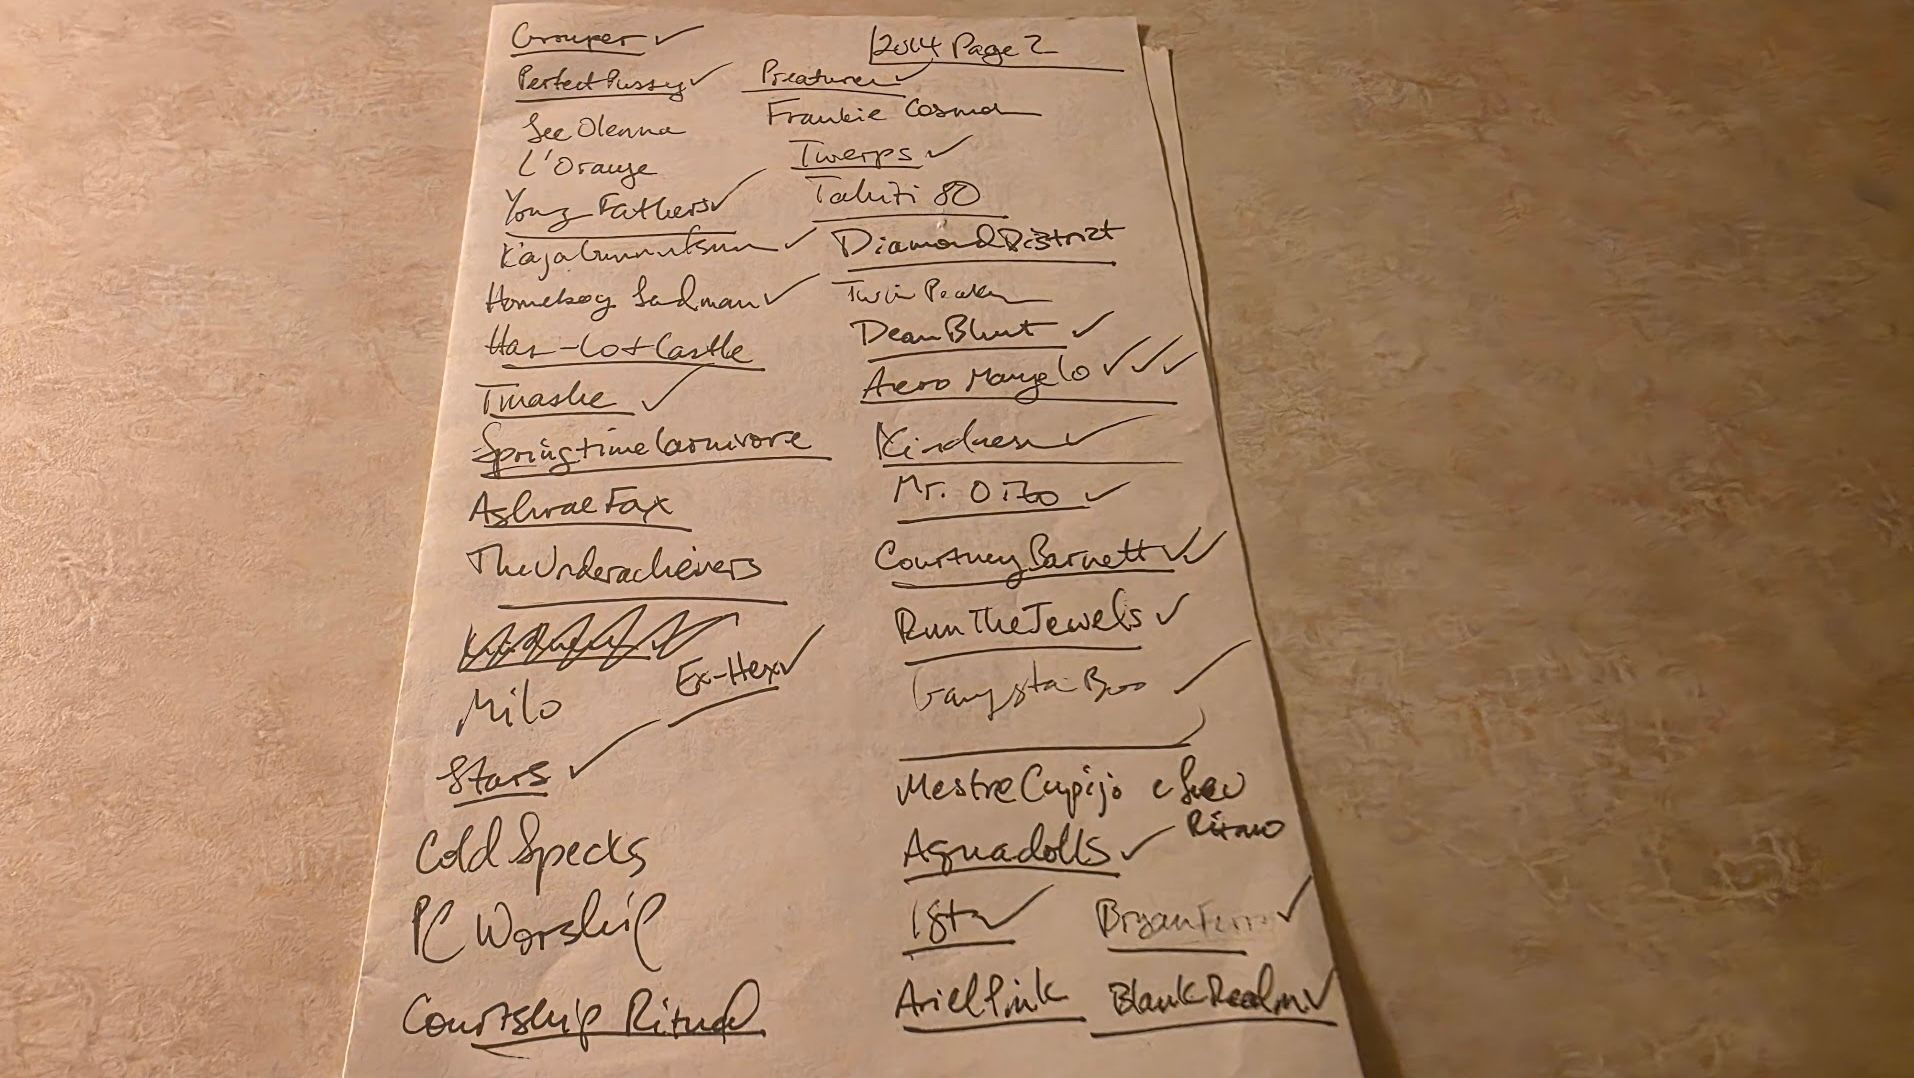 Grouper ✓
2014 Page 2
Perfect Pussy ✓
See Olenna
L'Orange
Young Fathers ✓
Kaja Gunnufsen ✓
Homeboy Sandman ✓
Has-Lo + Castle
Tinashe ✓
Springtime Carnivore
Ashrae Fax
The Underachievers
Milo
Ex-Hex ✓
Stars ✓
Cold Specks
PC Worship
Courtship Ritual
Preatures ✓
Frankie Cosmos
Twerps ✓
Tahiti 80
Diamond District
Twin Peaks
Dean Blunt ✓
Acero Mangelo ✓✓✓
Kindness ✓
Mr. Oizo ✓
Courtney Barnett ✓✓
Run The Jewels ✓
Gangsta Boo ✓
Mestre Cupijo e Seu
Ritmo
Aquadolls ✓
✓
Bryan Ferry ✓
Ariel Pink
Blank Realm ✓